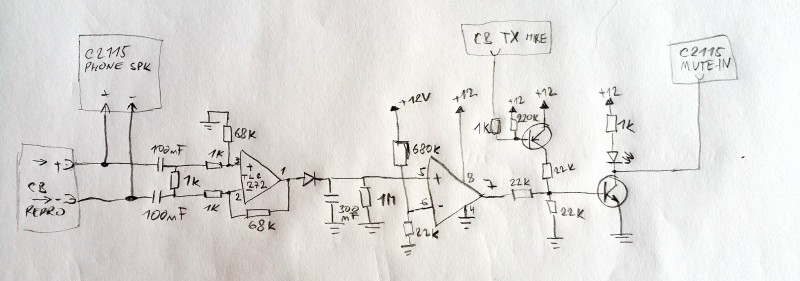 C2115
PHONE SPK
+
-
CB TX MIKE
C2115
MUTE-IN
+12V
+12
+12
+12
+12
68K
680K
1K
220K
1K
→ +
CB
→ -
REPRO
100mF
1K
1K
3
+
TLC
272
-
2
1
100mF
1K
68K
300
mF
1M
5
+
6
-
8
7
4
22K
22K
22K
22K